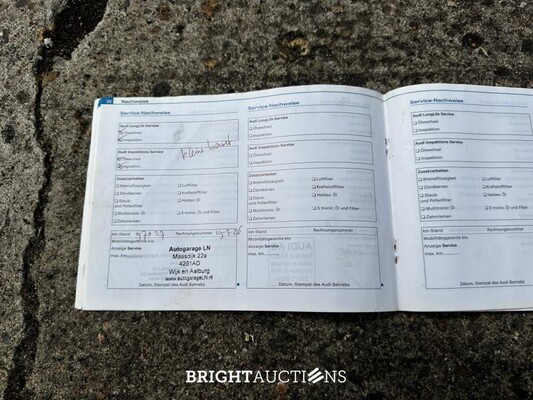 22 Nachweise
Service-Nachweise
Audi LongLife Service
Ölwechsel
Inspektion
Audi Inspektions Service
Ölwechsel
Inspektion
Zusatzarbeiten
Bremsflüssigkeit
Luftfilter
Zündkerzen
Kraftstofffilter
Staub- und Pollenfilter
Haldex Öl
Multitronic Öl
S tronic Öl und Filter
Zahnriemen
km-Stand
Rechnungsnummer
Mobilitätsgarantie bis:
Anzeige Service
max. km:
Autogarage LN
Maasdijk 22a
4261AD
Wijk en Aalburg
www.autogarageLN.nl
Datum, Stempel des Audi Betriebs
Service-Nachweise
Audi LongLife Service
Ölwechsel
Inspektion
Audi Inspektions Service
Ölwechsel
Inspektion
Zusatzarbeiten
Bremsflüssigkeit
Luftfilter
Zündkerzen
Kraftstofffilter
Staub- und Pollenfilter
Haldex Öl
Multitronic Öl
S tronic Öl und Filter
Zahnriemen
km-Stand
Rechnungsnummer
Mobilitätsgarantie bis:
Anzeige Service
max. km:
Datum, Stempel des Audi Betriebs
Service-Nachweise
Audi LongLife Service
Ölwechsel
Inspektion
Audi Inspektions Service
Ölwechsel
Inspektion
Zusatzarbeiten
Bremsflüssigkeit
Zündkerzen
Staub- und Pollenfilter
Multitronic Öl
Zahnriemen
km-Stand
Mobilitätsgarantie bis:
Anzeige Service
max. km:
Datum, Stempel des Audi Betriebs
BRIGHTAUCTIONS